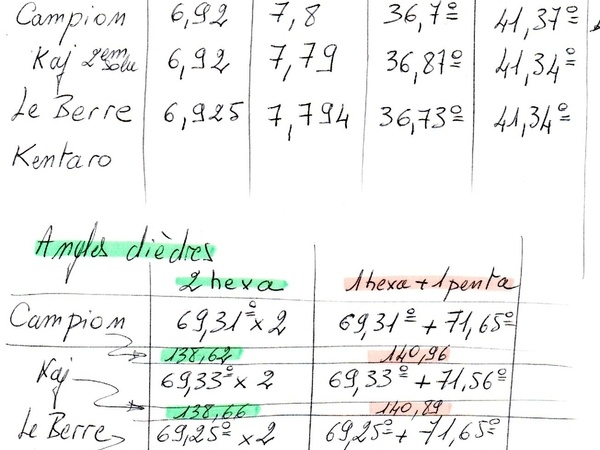 Campion 6,92 7,8 36,7° 41,37°
Kaj 2em solu 6,92 7,79 36,87° 41,34°
Le Berre 6,925 7,794 36,73° 41,34°
Kentaro
Angles dièdres
2 hexa 1 hexa + 1 penta
Campion 69,31° x 2 69,31° + 71,65°
138,62 140,96
Kaj 69,33° x 2 69,33° + 71,56°
138,66 140,89
Le Berre 69,25° x 2 69,25° + 71,65°